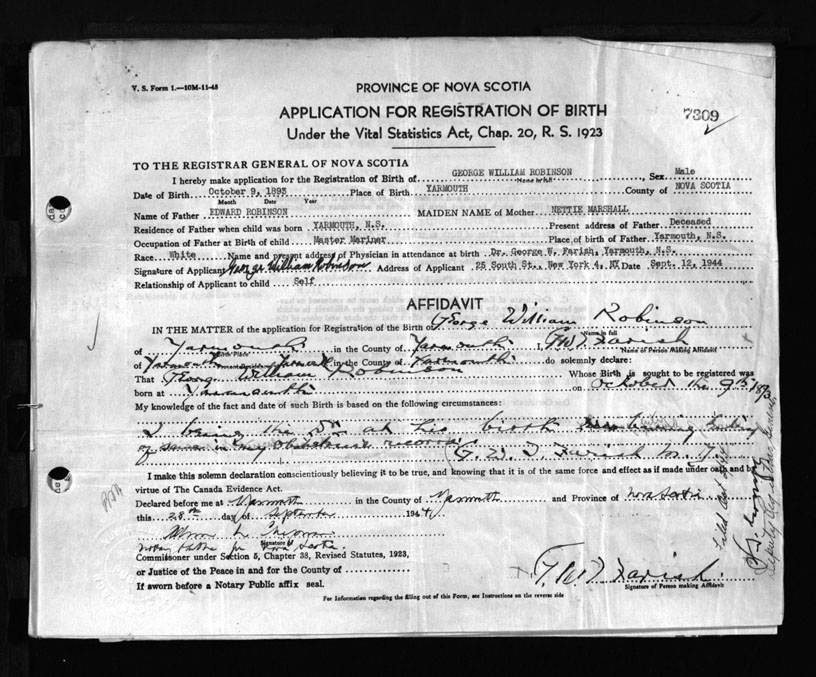 V. S. Form 1.—10M-11-43
PROVINCE OF NOVA SCOTIA
APPLICATION FOR REGISTRATION OF BIRTH
7309
Under the Vital Statistics Act, Chap. 20, R. S. 1923
TO THE REGISTRAR GENERAL OF NOVA SCOTIA
I hereby make application for the Registration of Birth of GEORGE WILLIAM ROBINSON, Sex Male
Name in full
Date of Birth October 9, 1893 Place of Birth YARMOUTH County of NOVA SCOTIA
Month Date Year
Name of Father EDWARD ROBINSON MAIDEN NAME of Mother NETTIE MARSHALL
Residence of Father when child was born YARMOUTH, N.S. Present address of Father Deceased
Occupation of Father at Birth of child Master Mariner Place of birth of Father Yarmouth, N.S.
Race White Name and present address of Physician in attendance at birth Dr. George W. Farish, Yarmouth, N.S.
Signature of Applicant George William Robinson Address of Applicant 25 South St., New York 4, NY Date Sept. 12, 1944
Relationship of Applicant to child Self
AFFIDAVIT
IN THE MATTER of the application for Registration of the Birth of George William Robinson
Name in full
of Yarmouth in the County of Yarmouth I, G W T Farish
Birth Place Name of Person Making Affidavit
of Yarmouth in the County of Yarmouth do solemnly declare:
Present Residence
That George William Robinson Whose Birth is sought to be registered was
born at Yarmouth on October the 9th 1893
My knowledge of the fact and date of such Birth is based on the following circumstances:
I being the Dr at his birth
of same in my obstetrical records (G. W. T. Farish M. D.
I make this solemn declaration conscientiously believing it to be true, and knowing that it is of the same force and effect as if made under oath and by
virtue of The Canada Evidence Act.
Declared before me at Yarmouth in the County of Yarmouth and Province of Nova Scotia
this 28th day of September 1944
Signature of
Notary Public for Nova Scotia
Commissioner under Section 5, Chapter 38, Revised Statutes, 1923,
or Justice of the Peace in and for the County of
If sworn before a Notary Public affix seal.
G. W. T. Farish
Signature of Person making Affidavit
For Information regarding the filling out of this Form, see Instructions on the reverse side